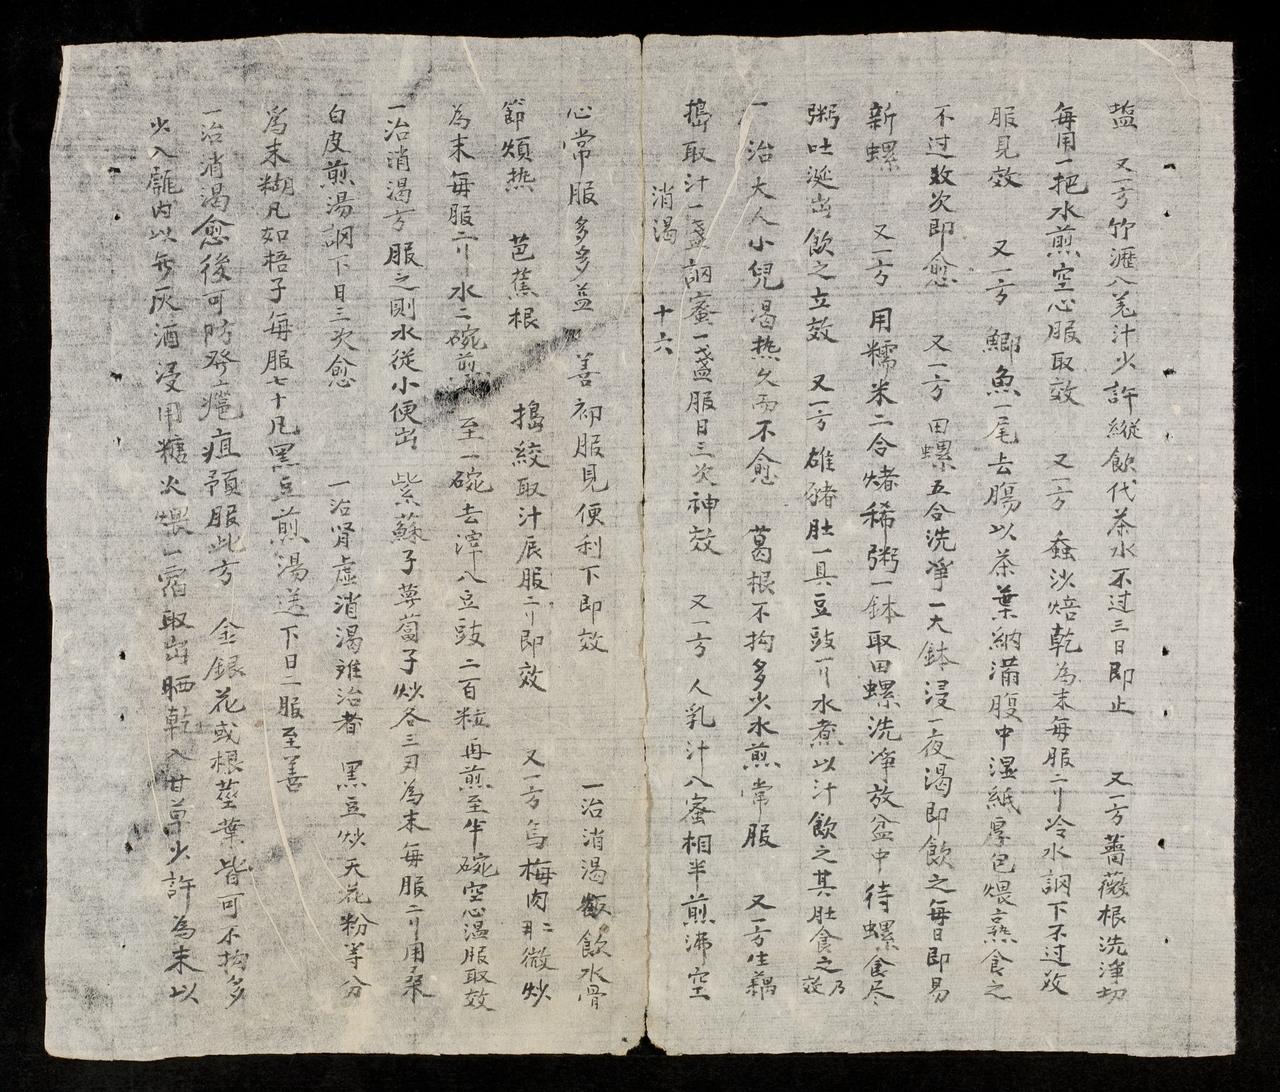 盐 又一方竹瀝入羌汁少許縱飲代茶水不过三日即止 又一方薔薇根洗淨切
每用一把水煎空心服取效 又一方 蚕沙焙乾為末每服二刂冷水調下不过效
服見效 又一方 鯽魚一尾去腸以茶葉納滿腹中湿紙厚包煨熟食之
不过数次即愈 又一方 田螺五合洗净一大鉢浸一夜渴即飲之每日即易
新螺 又一方 用糯米二合煑稀粥一鉢取田螺洗净放盆中待螺食尽
粥吐涎出飲之立效 又一方 雄豬肚一具豆豉一刂水煮以汁飲之其肚食之乃效
一治大人小兒渴热久而不愈 葛根不拘多少水煎常服 又一方生藕
搗取汁一盞調蜜一盞服日三次神效 又一方 人乳汁入蜜相半煎沸空
消渴 十六
心常服多多益善初服見便利下即效 一治消渴飲水骨
節煩热 芭蕉根 搗絞取汁辰服二刂即效 又一方烏梅肉二微炒
為末每服二刂水二碗煎至一碗去滓入豆豉二百粒再煎至半碗空心温服取效
一治消渴方服之則水從小便出 紫蘇子萝蔔子炒各三刃為末每服二刂用桑
白皮煎湯調下日三次愈 一治肾虚消渴难治者 黑豆炒天花粉等分
為末糊凡如梧子每服七十凡黑豆煎湯送下日二服至善
一治消渴愈後可防發瘡疽預服此方 金銀花或根莖葉皆可不拘多
少入瓶内以无灰酒浸用糖火煨一宿取出晒乾入甘草少許為末以